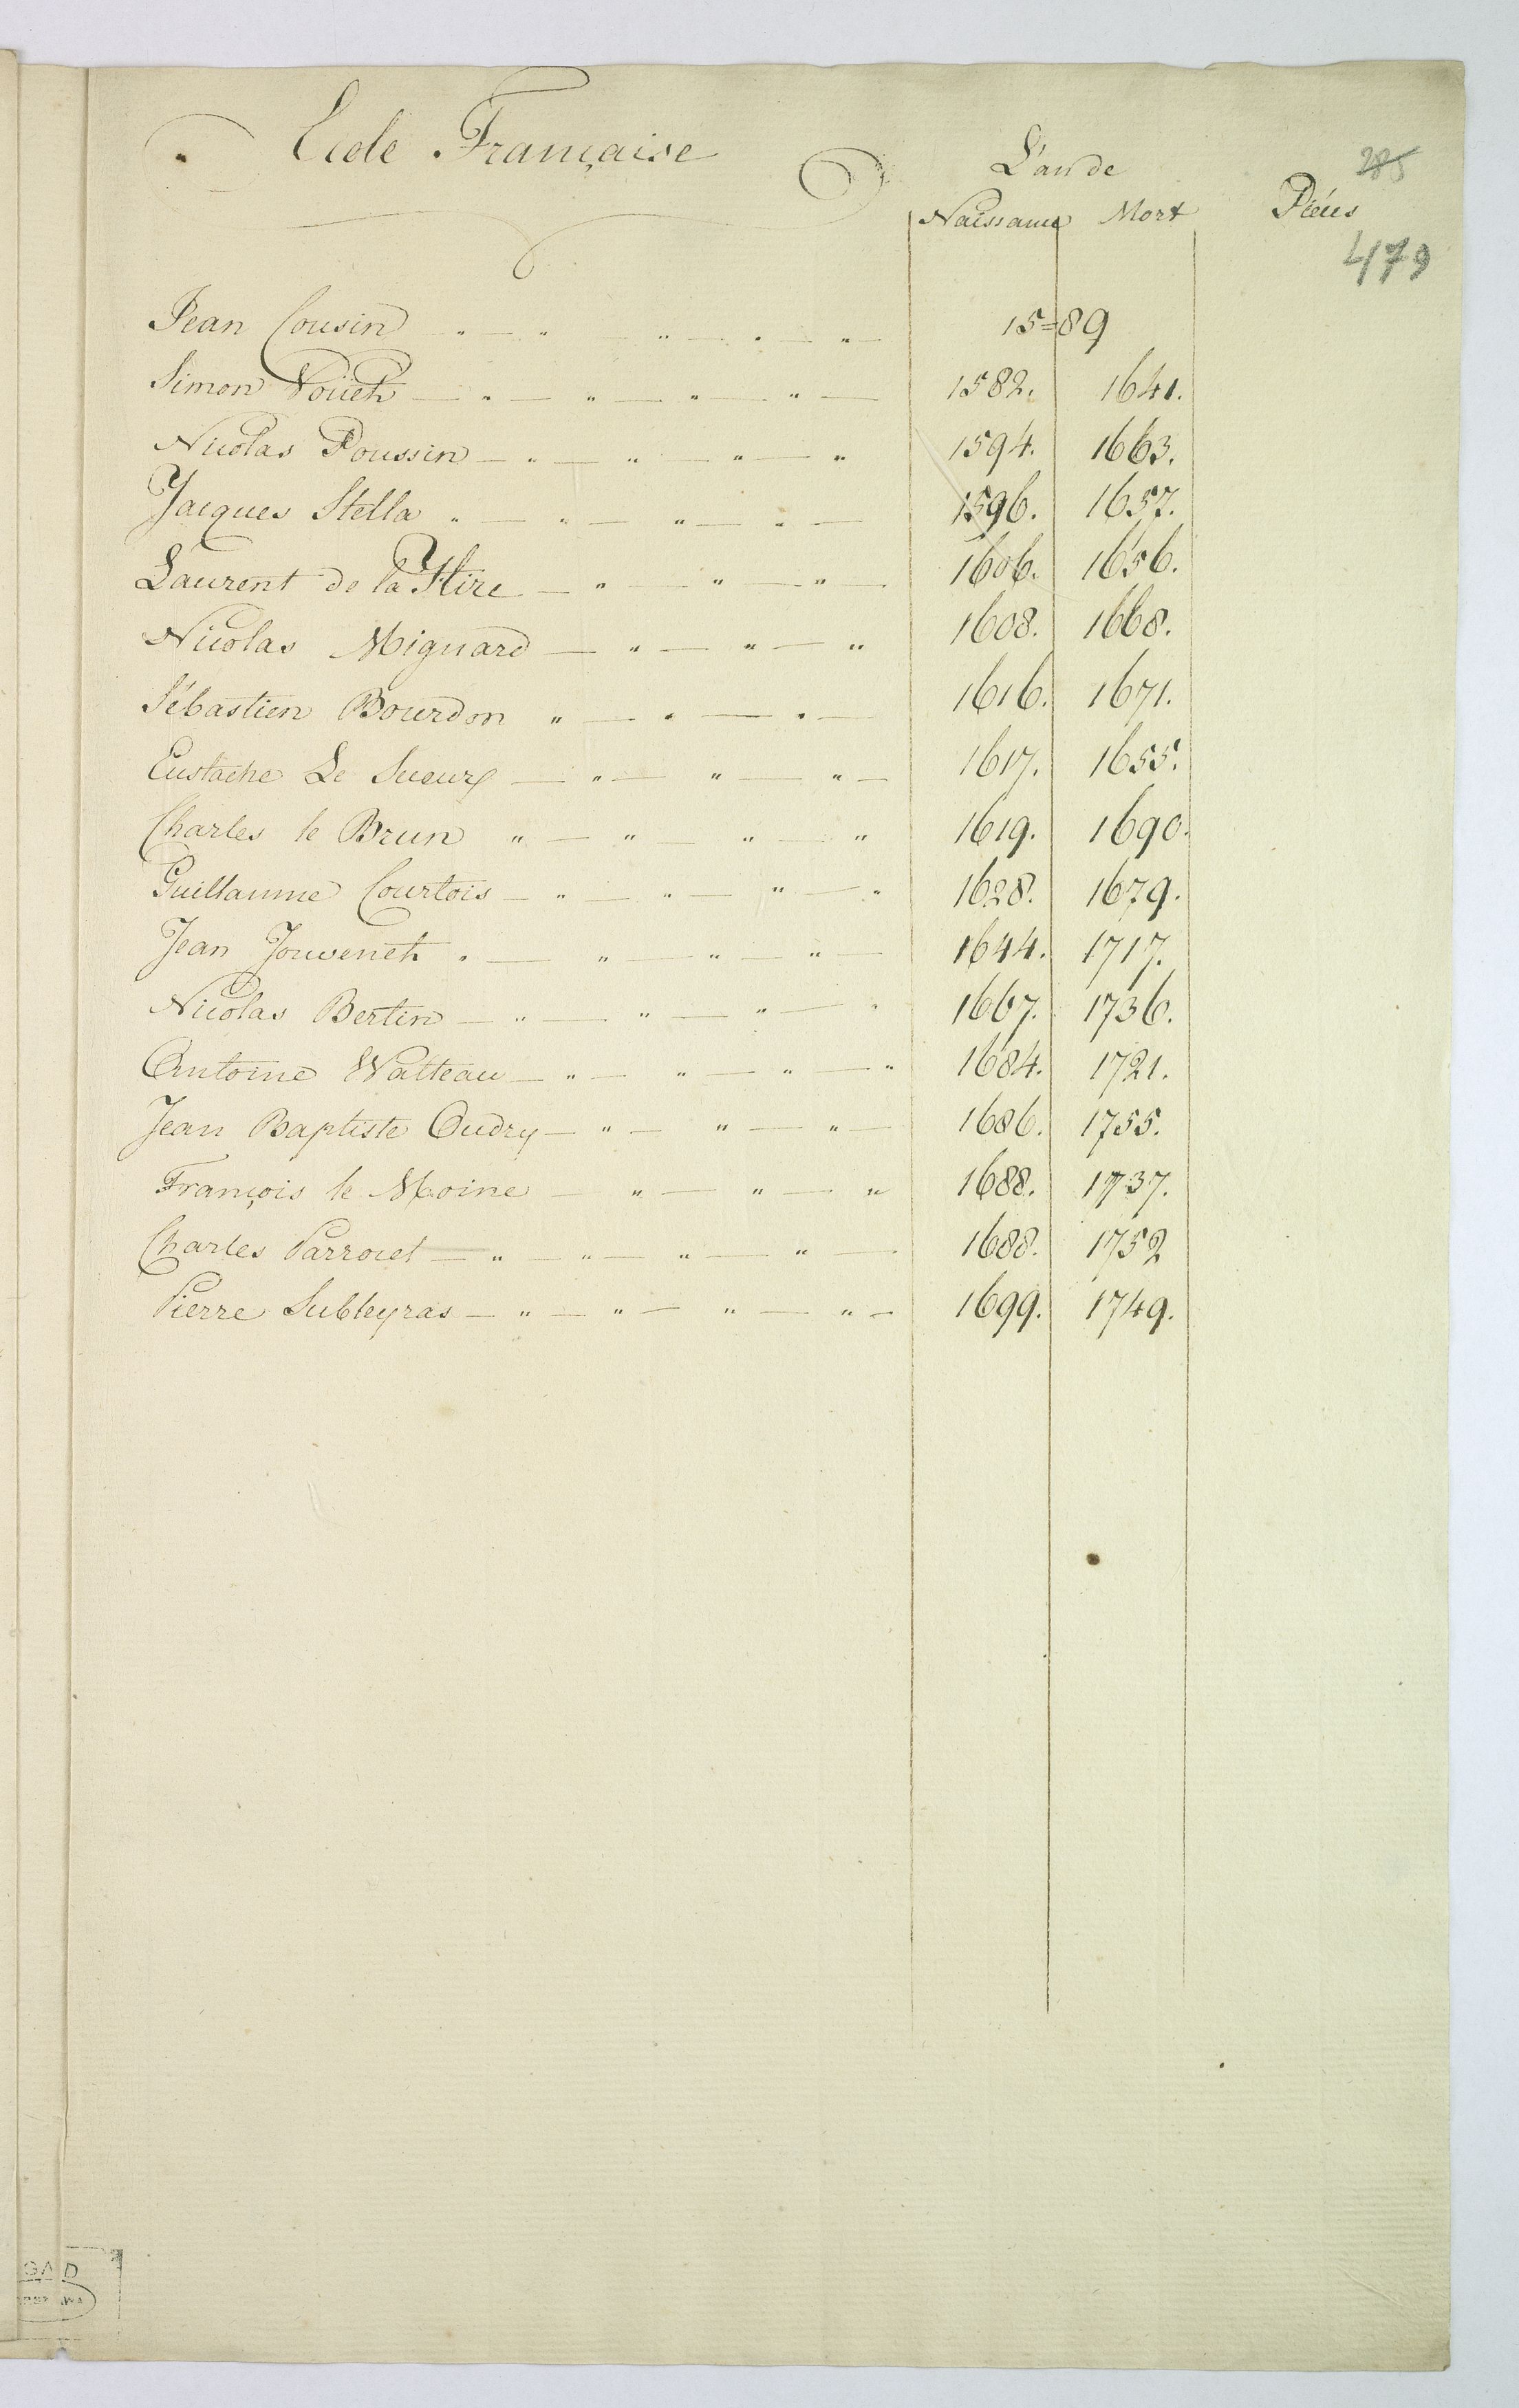 Ecole Française
L'an de
285
Naissance Mort Piéces
479
Jean Cousin 15=89
Simon Vouët 1582. 1641.
Nicolas Poussin 1594. 1663.
Jacques Stella 1596. 1657.
Laurent de la Hire 1606. 1656.
Nicolas Mignard 1608. 1668.
Sébastien Bourdon 1616. 1671.
Eustache Le Sueur 1617. 1655.
Charles le Brun 1619. 1690.
Guillaume Courtois 1628. 1679.
Jean Jouvenet 1644. 1717.
Nicolas Bertin 1667. 1736.
Antoine Watteau 1684. 1721.
Jean Baptiste Oudry 1686. 1755.
François le Moine 1688. 1737.
Charles Parrocel 1688. 1752
Pierre Subleyras 1699. 1749.
GAD